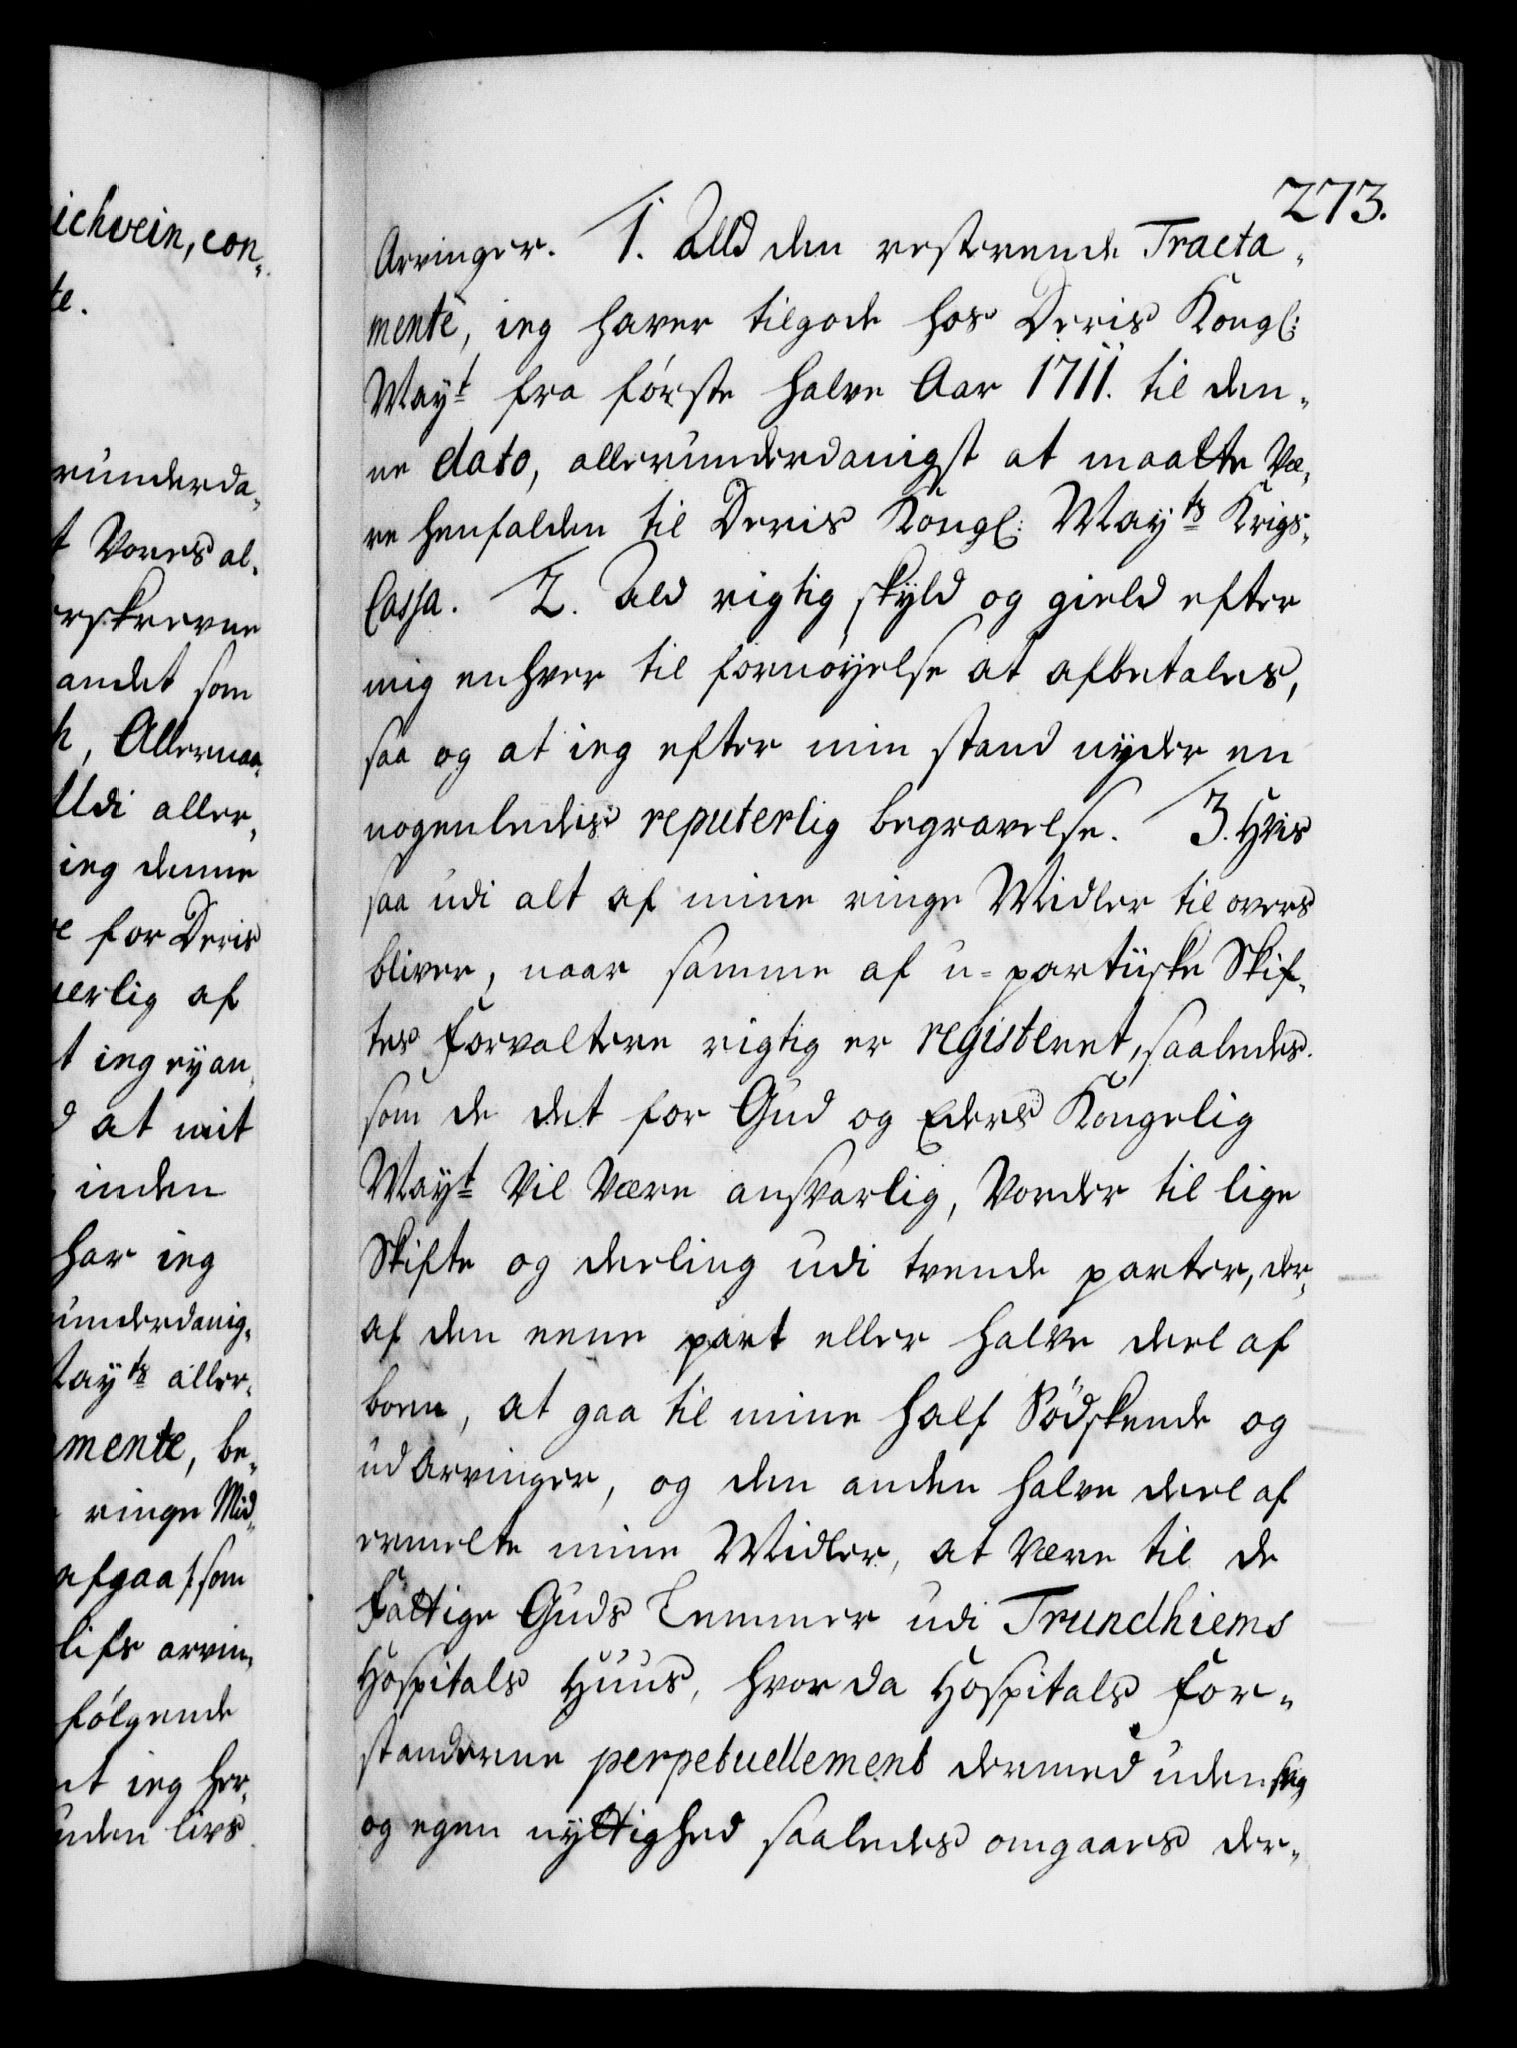 ichvein, con-
te.
runderda-
t Vores al-
rskrevne
andet som
h, Allernaa-
Udi aller-
ieg denne
e for Deris
erlig af
t ieg ey an-
d at mit
inden
har ieg
underdanig-
Mayts aller-
mente, be-
ringe Mid-
afgaa /: som
lifs arvin-
følgende
nt ieg her-
uden livs
273.
Arvinger. 1. Alld den resterende Tracta-
mente, ieg haver tilgode hos Deris Kongl:
Mayt fra første halve Aar 1711. til den-
ne dato, allerunderdanigst at maatte Væ-
re henfalden til Deris Kongl: Mayts Krigs-
Cassa. 2. Ald rigtig skyld og gield efter
mig enhver til fornøyelse at afbetales,
saa og at ieg efter min stand nyder en
nogenledis reputerlig begravelse. 3. Hvis
saa udi alt af mine ringe Midler til overs
bliver, naar samme af u-partiiske Skif-
tes forvaltere rigtig er registeret, saaledes
som de det for Gud og Eders Kongelig
Mayt Vil Være ansvarlig, Vorder til lige
Skifte og deeling udi tvende parter, der-
af den eene part eller halve deel af
boen, at gaa til mine half Södskende og
ud Arvinger, og den anden halve deel af
ermelte mine Midler, at Være til de
fattige Guds Lemmer udi Trundhiems
Hospitals Huus, hvor da Hospitals For-
standerne perpetuellement dermed uden svig
og egen nyttighed saaledes omgaaes der-